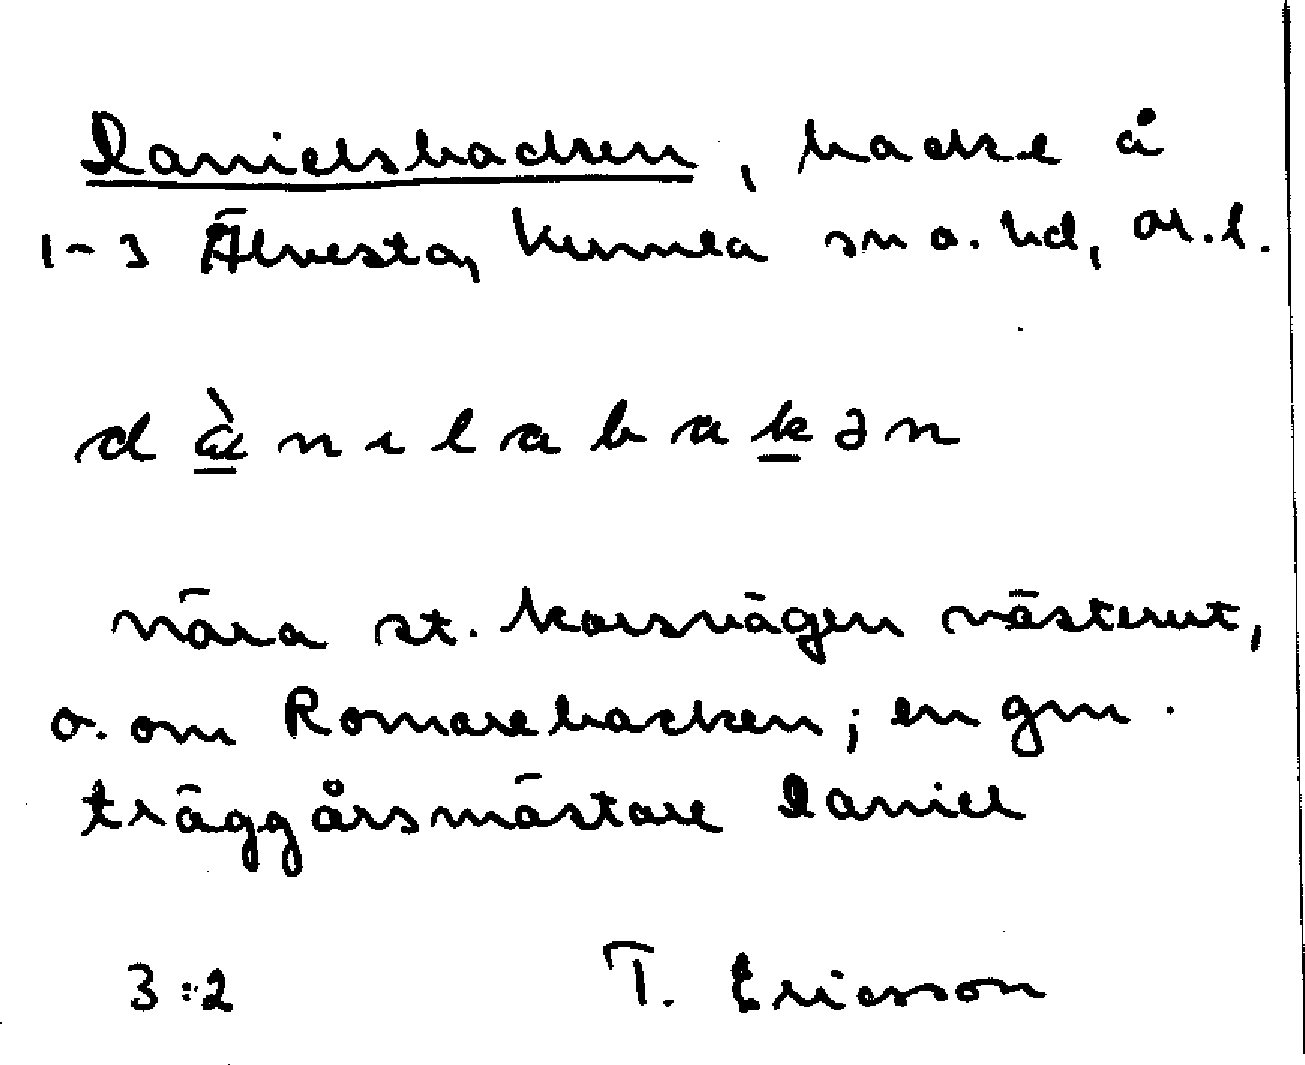 Danielsbacken, backe å
1-3 Älvesta, Kumla sn o. hd, Ör.l.
dànilabakən
nära st. korsvägen västerut,
o. om Romarebacken; en gm.
träggårsmästare Daniel
3:2 T. Ericsson